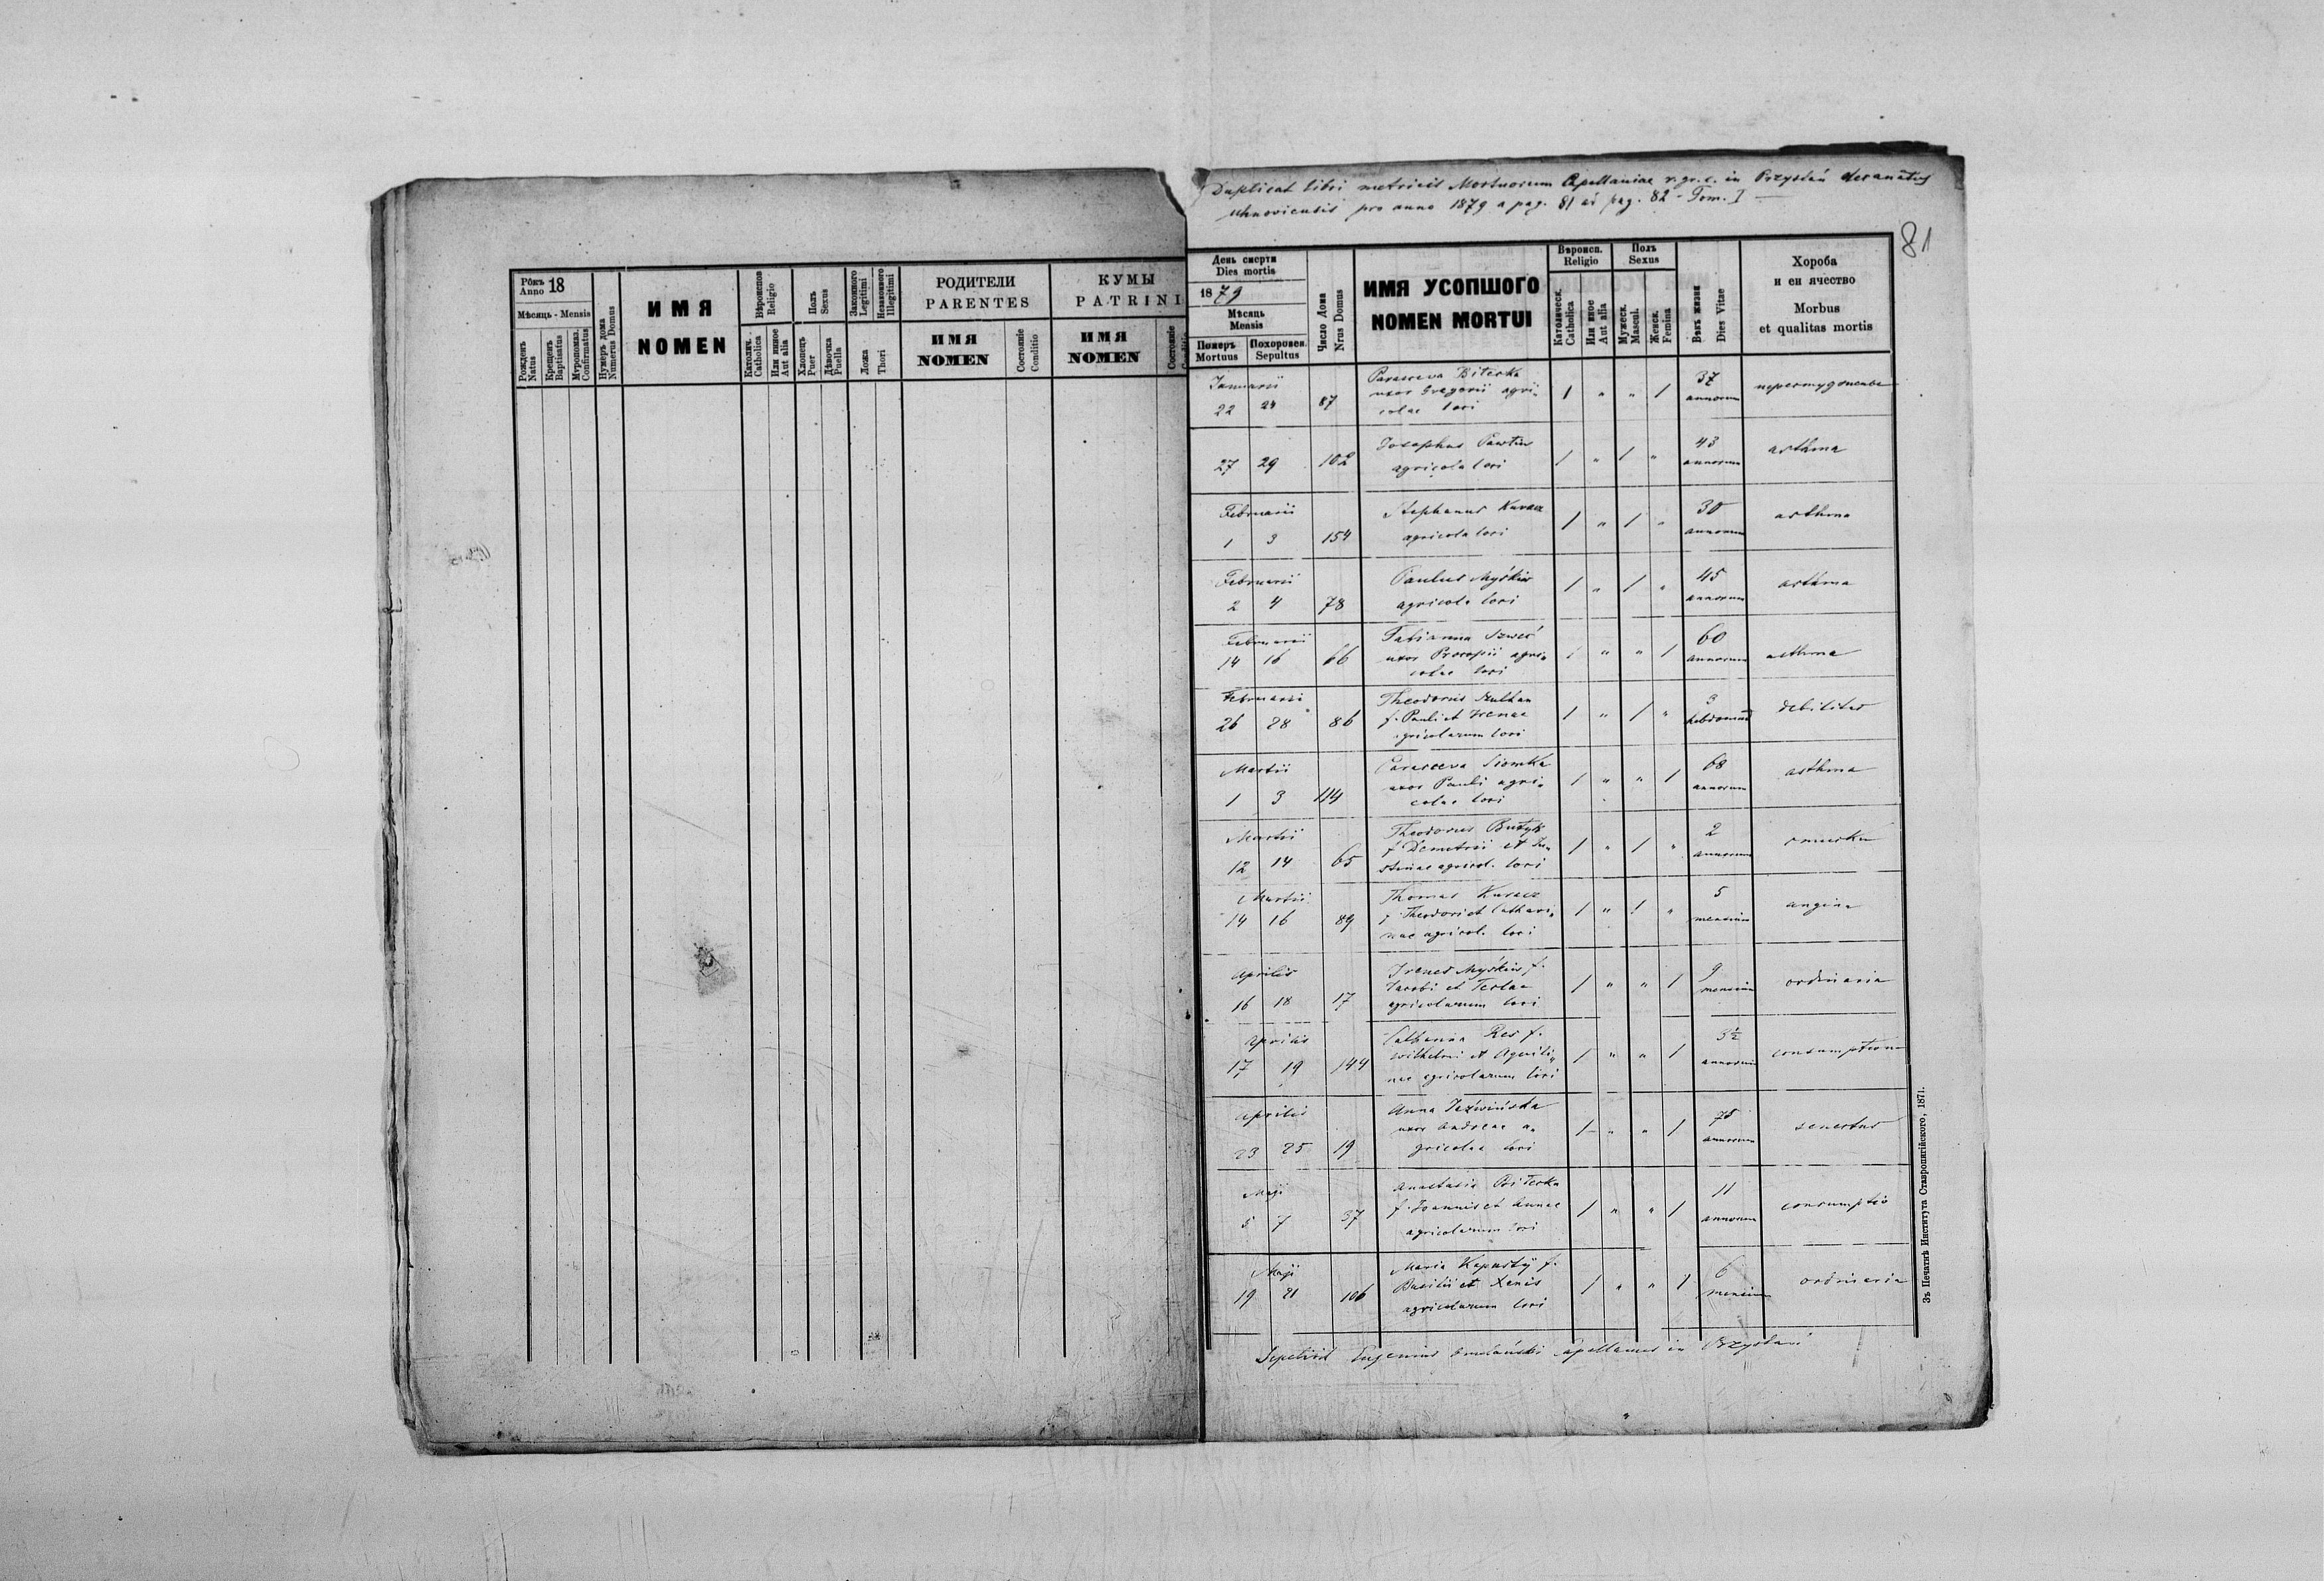 Duplicat libri metrices Mortuorum Capellaniae r. gr. c. in Przystań decanatus
Uhnoviensis pro anno 1879 a pag. 81 ad pag. 82 - Tom. I
81
Рôкъ Anno 18
Мѣсяць - Mensis
Рожденъ Natus
Крещенъ Baptisatus
Мѵропомаз. Confirmatus
Нумѣръ дома Numerus Domus
ИМЯ
NOMEN
Вѣроиспов Religio
Католич. Catholica
Или иное Aut alia
Полъ Sexus
Хлопець Puer
Дѣвочка Puella
Законного Legitimi
Незаконного Illegitimi
Ложа Thori
РОДИТЕЛИ
PARENTES
ИМЯ
NOMEN
Состояніе Conditio
КУМЫ
PATRINI
ИМЯ
NOMEN
Состояніе
День смерти
Dies mortis
1879
Мѣсяць
Mensis
Померъ Mortuus
Похоронен. Sepultus
Число Дома Nrus Domus
ИМЯ УСОПШОГО
NOMEN MORTUI
Вѣроисп.
Religio
Католическ. Catholica
Или иное Aut alia
Полъ
Sexus
Мужеск. Mascul.
Женск. Femina
Вѣкъ жизни Dies Vitae
Хороба
и еи ячество
Morbus
et qualitas mortis
Januarii
22 24 87
Parasceva Biterka
uxor Gregorii agri-
colae loci
1 " " 1
37 annorum
27 29 102
Josephus Pawtiw
agricola loci
1 " 1 "
43 annorum
asthma
Februarii
1 3 154
Stephanus Kuracz
agricola loci
1 " 1 "
30 annorum
asthma
Februarii
2 4 78
Paulus Myśkiw
agricola loci
1 " 1 "
45 annorum
asthma
Februarii
14 16 66
Fabianna Szweć
uxor Procopii agri-
colae loci
1 " " 1
60 annorum
asthma
Februarii
26 28 86
Theodorus Szulhan
f. Pauli et Irenae
agricolarum loci
1 " 1 "
3 hebdomad
debilitas
Martii
1 3 114
Parasceva Siomka
uxor Pauli agri-
colae loci
1 " " 1
68 annorum
asthma
Martii
12 14 65
Theodorus
f. Demetrii et Ju-
stinae agricol. loci
1 " 1 "
2 annorum
Martii
14 16 89
Thomas Kuracz
f. Theodori et Cathari-
nae agricol. loci
1 " 1 "
5 mensium
angina
Aprilis
16 18 17
Irenes Myśkiw f.
Jacobi et Teclae
agricolarum loci
1 " " 1
9 mensium
ordinaria
Aprilis
17 19 144
Catharina Res f.
Wilhelmi et Aquili-
nae agricolarum loci
1 " " 1
3½ annorum
consumptione
Aprilis
23 25 19
Anna Jaźwińska
uxor Andreae a-
gricolae loci
1 " " 1
75 annorum
senectus
Maji
5 7 37
Anastasia Biterka
f. Joannis et Annae
agricolarum loci
1 " " 1
11 annorum
consumptio
Maji
19 21 106
Maria Kapustij f.
Basilii et Xenis
agricolarum loci
1 " " 1
6 mensium
ordinaria
Sepelivit Eugenius capellanus in Przystań
Зъ Печатнѣ Института Ставропигійского, 1871.